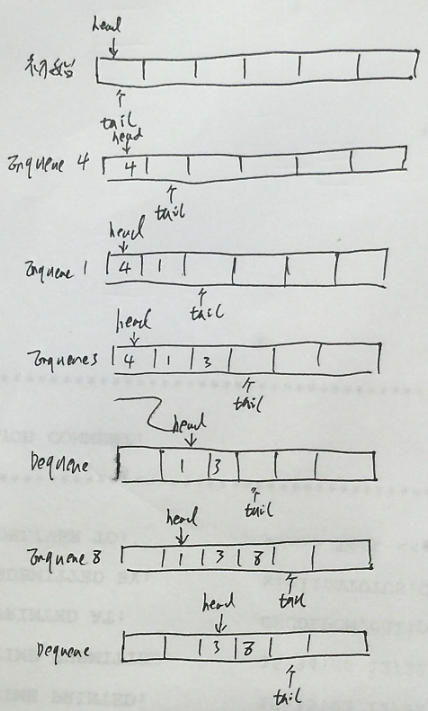 head
初始
tail
head
Enqueue 4
4
tail
head
Enqueue 1
4 1
tail
head
Enqueue 3
4 1 3
tail
head
Dequeue
1 3
tail
head
Enqueue 8
1 3 8
tail
head
Dequeue
3 8
tail